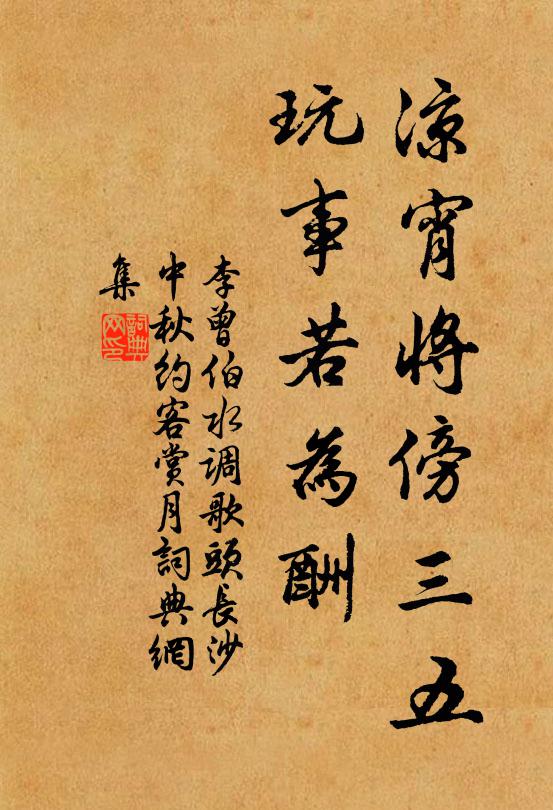 涼宵將傍三五
玩事若為酬
李曾伯水調歌頭長沙
中秋約客賞月詞典網
集
詞典
网印